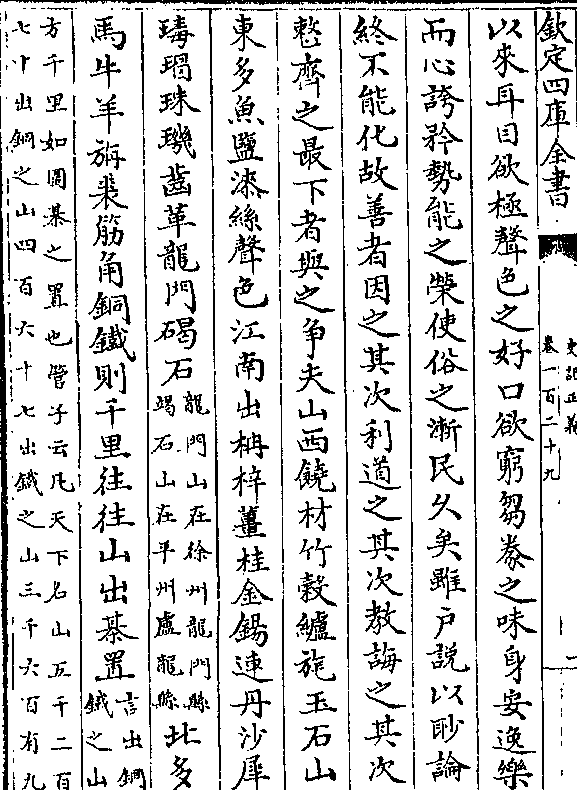 欽定四庫全書
史記正義
卷一百二十九
一
以來耳目欲極聲色之好口欲窮芻豢之味身安逸樂
而心誇矜勢能之榮使俗之漸民久矣雖户說以眇論
終不能化故善者因之其次利道之其次教誨之其次
整齊之最下者與之争夫山西饒材竹榖纑旄玉石山
東多魚鹽漆絲聲色江南出枏梓薑桂金錫連丹沙犀
瑇瑁珠璣齒革龍門碣石龍門山在徐州龍門縣碣石山在平州盧龍縣北多
馬牛羊旃裘筋角銅鐵則千里往往山出棊置言出銅鐵之山
方千里如圍棊之置也管子云凡天下名山五千二百
七十出銅之山四百六十七出鐵之山三千六百有九